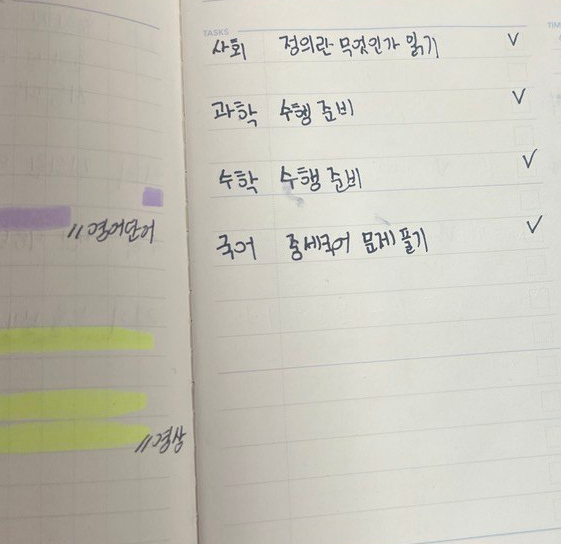 TASKS
사회 정의란 무엇인가 읽기 ✓
과학 수행 준비 ✓
수학 수행 준비 ✓
국어 중세국어 문제 풀기 ✓
// 영어단어
// 영상
TIM